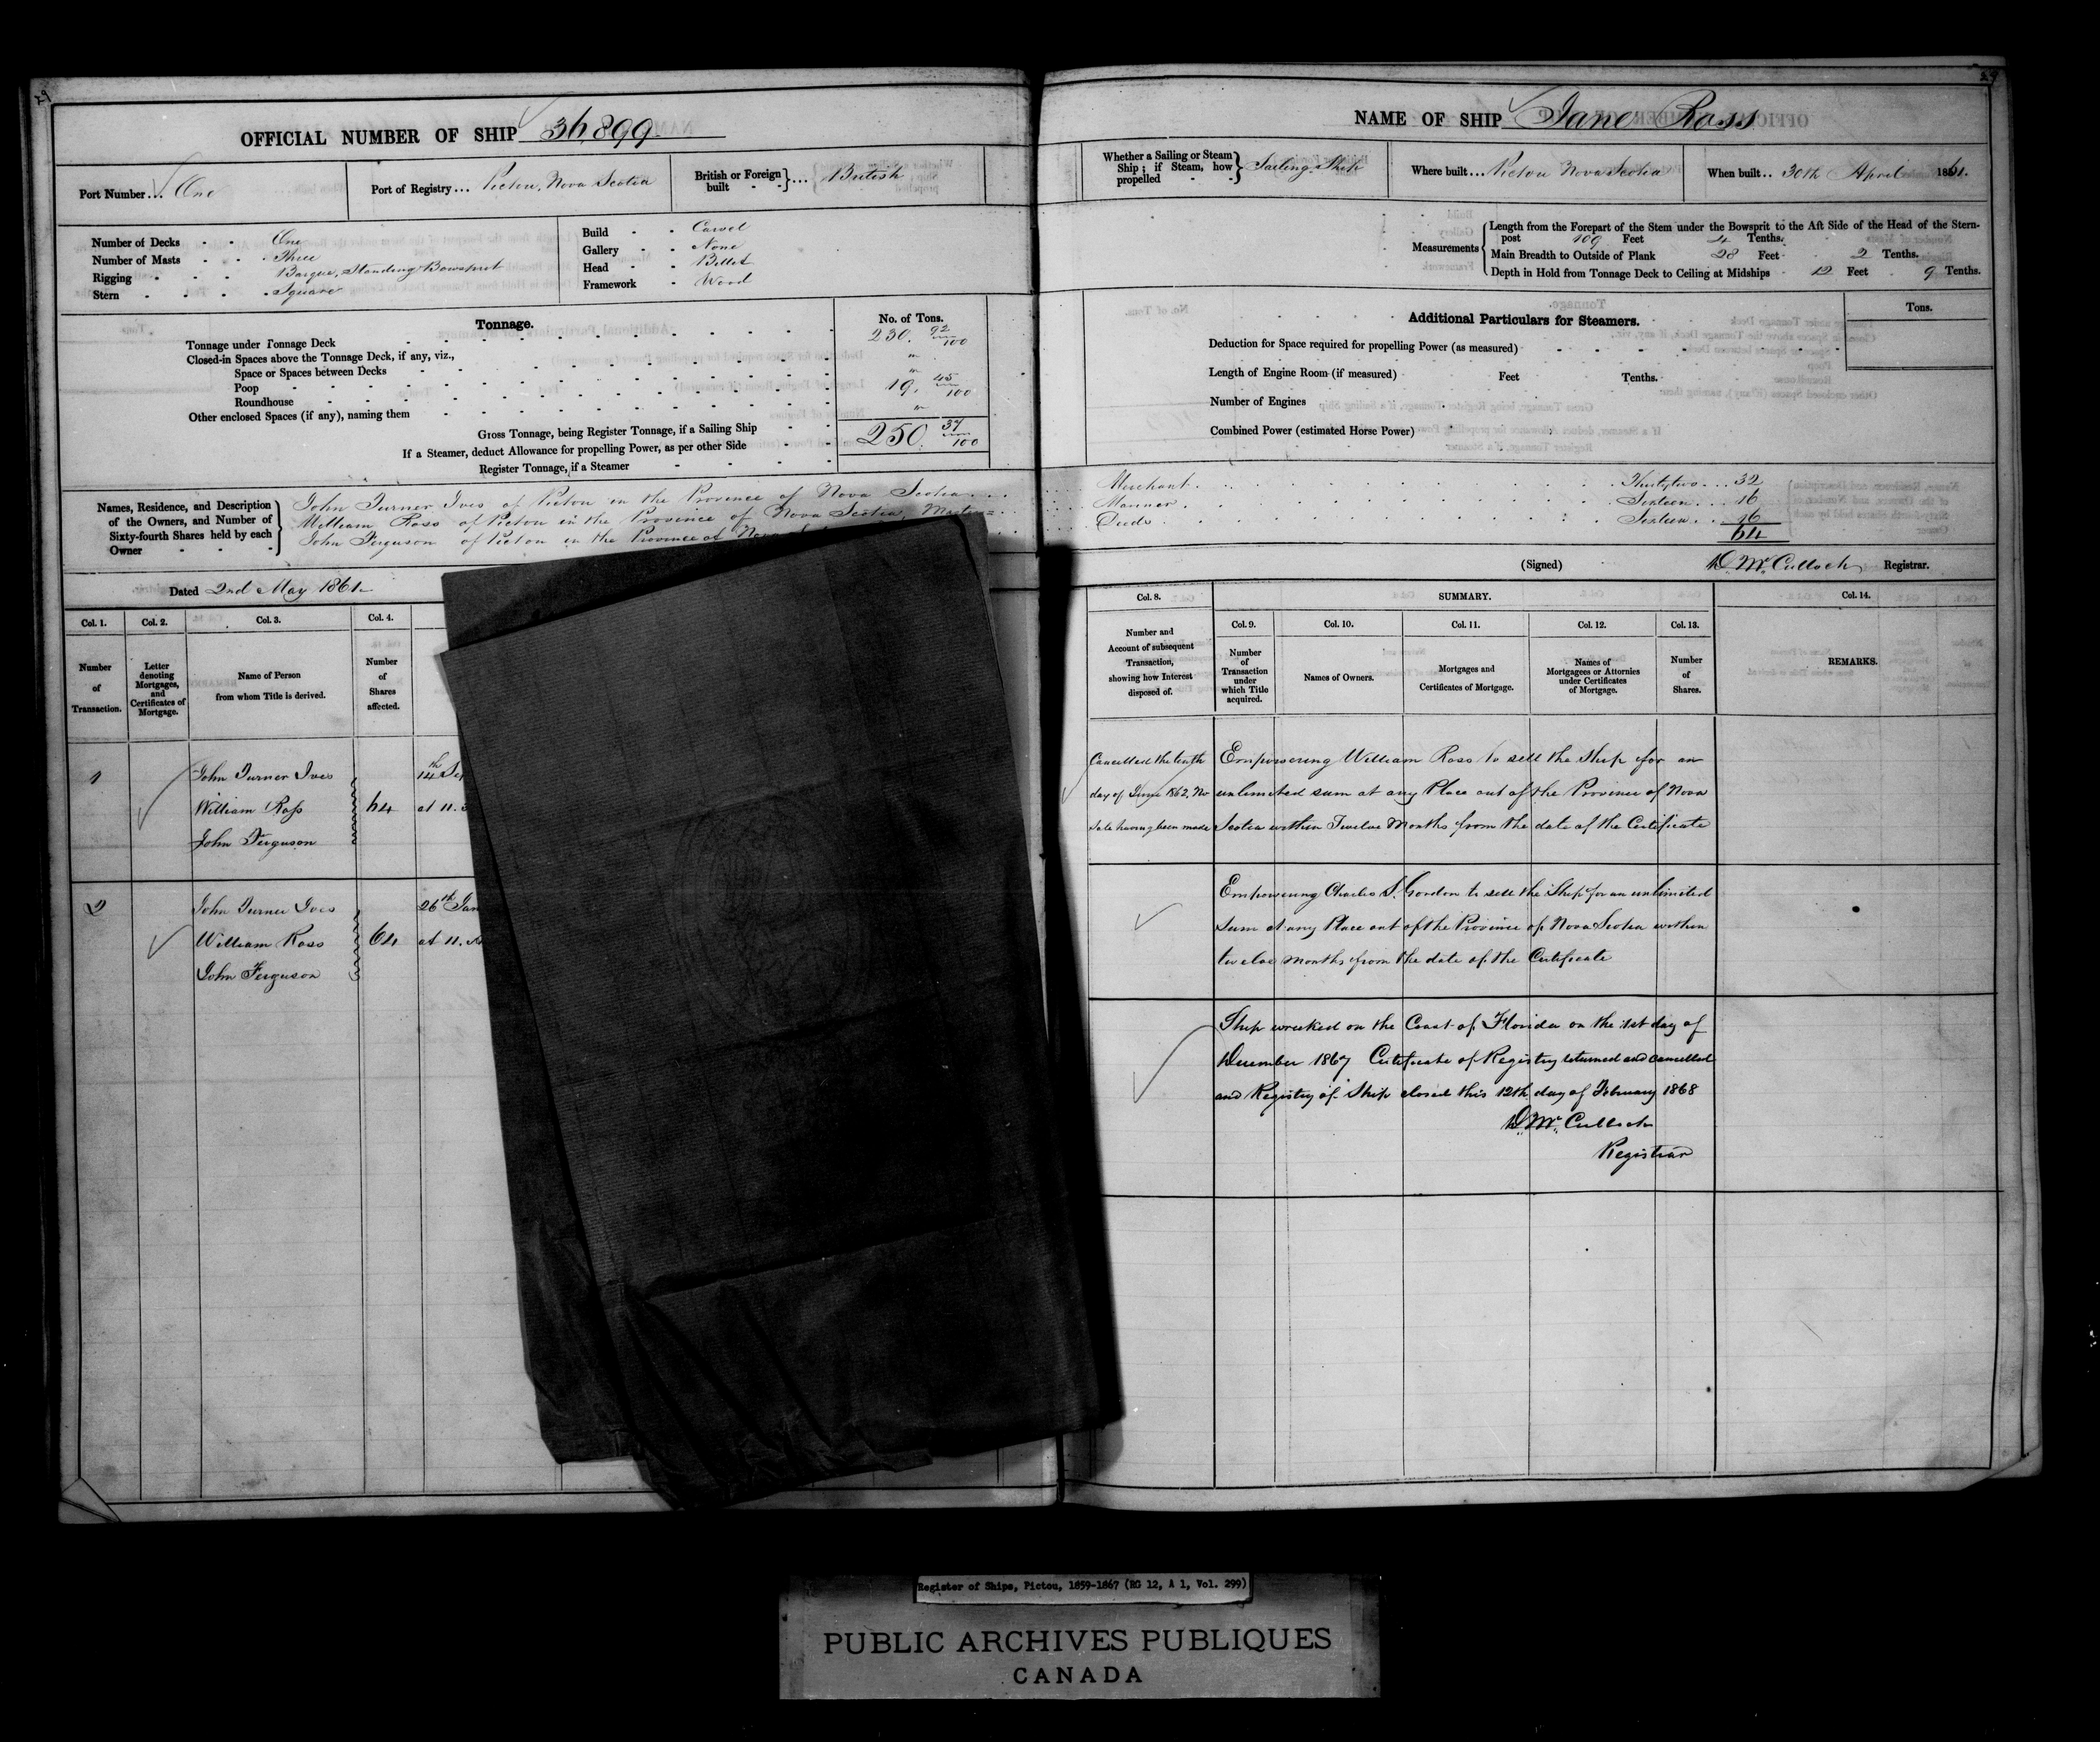 29
OFFICIAL NUMBER OF SHIP 36,899
Port Number... One
Port of Registry... Pictou, Nova Scotia
British or Foreign built - - } ... British
Number of Decks - - One
Number of Masts - - Three
Rigging - - - Barque, Standing Bowsprit
Stern - - - - Square
Build - - Carvel
Gallery - - None
Head - - Billet
Framework - Wood
Tonnage.
No. of Tons.
Tonnage under Tonnage Deck 230. 92/100
Closed-in Spaces above the Tonnage Deck, if any, viz., "
Space or Spaces between Decks "
Poop 19. 45/100
Roundhouse
Other enclosed Spaces (if any), naming them "
Gross Tonnage, being Register Tonnage, if a Sailing Ship 250. 37/100
If a Steamer, deduct Allowance for propelling Power, as per other Side
Register Tonnage, if a Steamer
Names, Residence, and Description of the Owners, and Number of Sixty-fourth Shares held by each Owner
John Turner Ives of Pictou in the Province of Nova Scotia...
William Ross of Pictou in the Province of Nova Scotia, Master
John Ferguson of Pictou in the Province of Nova
Dated 2nd May 1861
Col. 1.
Col. 2.
Col. 3.
Col. 4.
Number of Transaction.
Letter denoting Mortgages, and Certificates of Mortgage.
Name of Person from whom Title is derived.
Number of Shares affected.
1
John Turner Ives
William Ross
John Ferguson
64
14th Se
at 11.
2
John Turner Ives
William Ross
John Ferguson
64
26th Jan
at 11. A
29
NAME OF SHIP Jane Ross
Whether a Sailing or Steam Ship; if Steam, how propelled - - } Sailing Ship
Where built... Pictou Nova Scotia
When built.. 30th April 1861.
Measurements
Length from the Forepart of the Stem under the Bowsprit to the Aft Side of the Head of the Stern-
post 109 Feet 4 Tenths.
Main Breadth to Outside of Plank 28 Feet 2 Tenths.
Depth in Hold from Tonnage Deck to Ceiling at Midships 12 Feet 9 Tenths.
Additional Particulars for Steamers.
Tons.
Deduction for Space required for propelling Power (as measured)
Length of Engine Room (if measured) Feet Tenths.
Number of Engines
Combined Power (estimated Horse Power)
Merchant. Thirty two... 32
Mariner. Sixteen... 16
Sixteen... 16
64
(Signed) D. McCulloch Registrar.
Col. 8.
SUMMARY.
Col. 14.
Col. 9.
Col. 10.
Col. 11.
Col. 12.
Col. 13.
Number and Account of subsequent Transaction, showing how Interest disposed of.
Number of Transaction under which Title acquired.
Names of Owners.
Mortgages and Certificates of Mortgage.
Names of Mortgagees or Attornies under Certificates of Mortgage.
Number of Shares.
REMARKS.
Cancelled the tenth
day of June 1862, No
Sale having been made
Empowering William Ross to sell the Ship for an
unlimited sum at any Place out of the Province of Nova
Scotia within Twelve Months from the date of the Certificate
Empowering Charles S. Gordon to sell the Ship for an unlimited
sum at any Place out of the Province of Nova Scotia within
twelve months from the date of the Certificate
Ship wrecked on the Coast of Florida on the 1st day of
December 1867 Certificate of Registry returned and cancelled
and Registry of Ship closed this 12th day of February 1868
D. McCulloch
Registrar
Register of Ships, Pictou, 1859-1867 (RG 12, A 1, Vol. 299)
PUBLIC ARCHIVES PUBLIQUES
CANADA